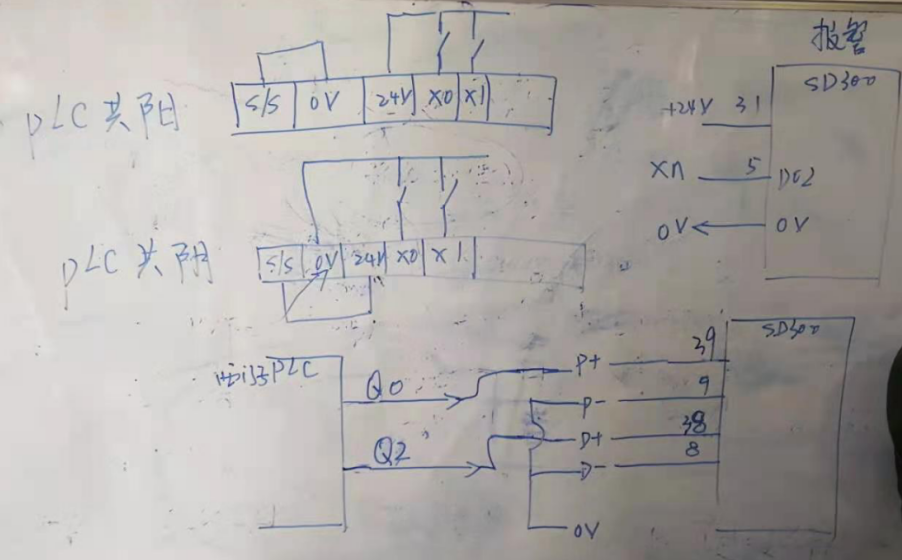 报警
PLC 共阳
S/S 0V 24V X0 X1
SD300
+24V 31
Xn 5 DO2
0V 0V
PLC 共阴
S/S 0V 24V X0 X1
PLC
Q0
Q2
SD300
P+ 39
P- 9
D+ 38
D- 8
0V